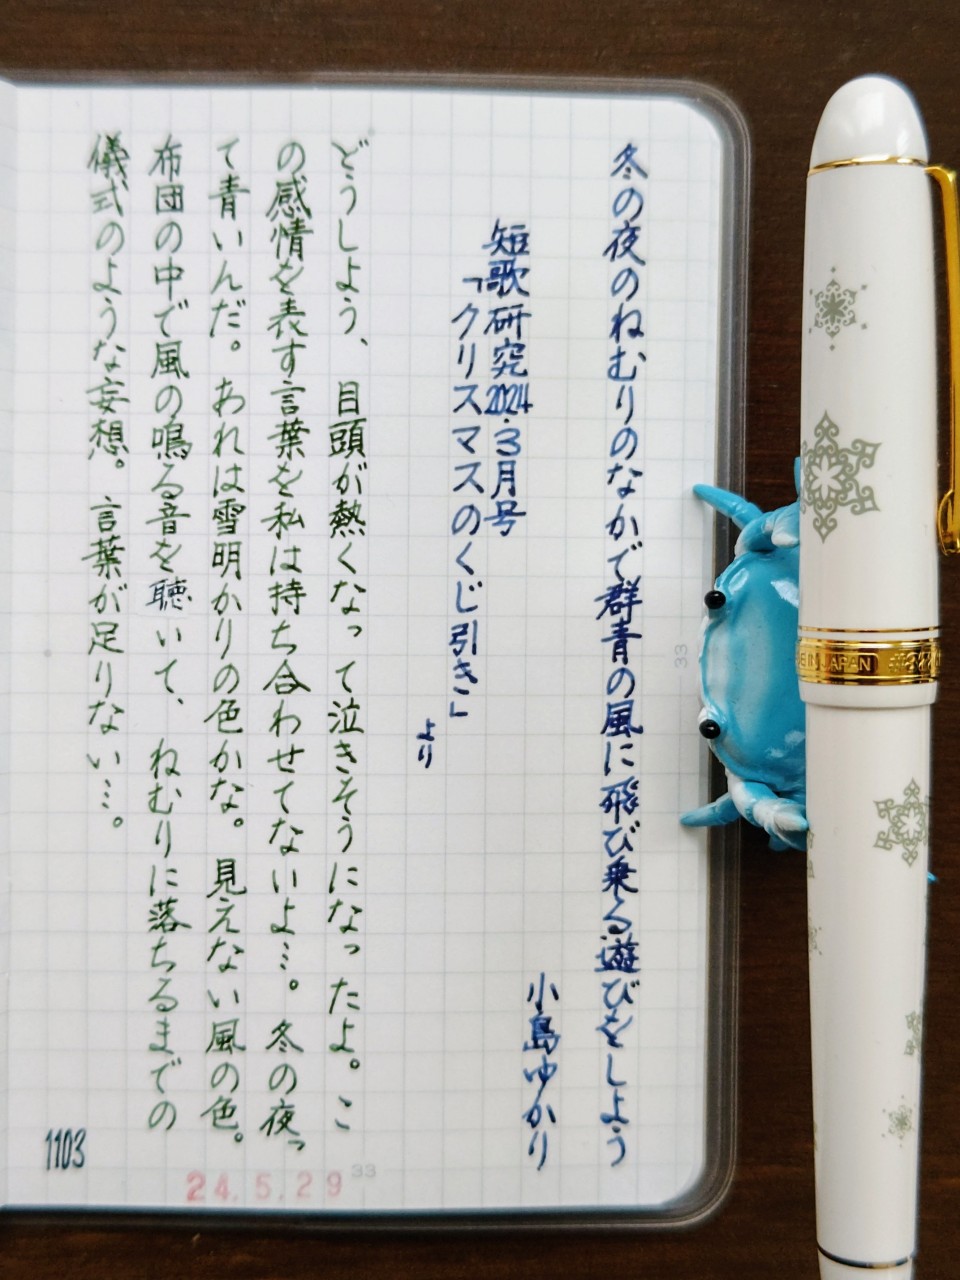 冬の夜のねむりのなかで群青の風に飛び乗る遊びをしよう
小島ゆかり
短歌研究2024.3月号
「クリスマスのくじ引き」
より
どうしよう、目頭が熱くなって泣きそうになったよ。こ
の感情を表す言葉を私は持ち合わせてないよ…。冬の夜っ
て青いんだ。あれは雪明かりの色かな。見えない風の色。
布団の中で風の鳴る音を聴いて、ねむりに落ちるまでの
儀式のような妄想。言葉が足りない…。
1103
24.5.29
33
33
JAPAN